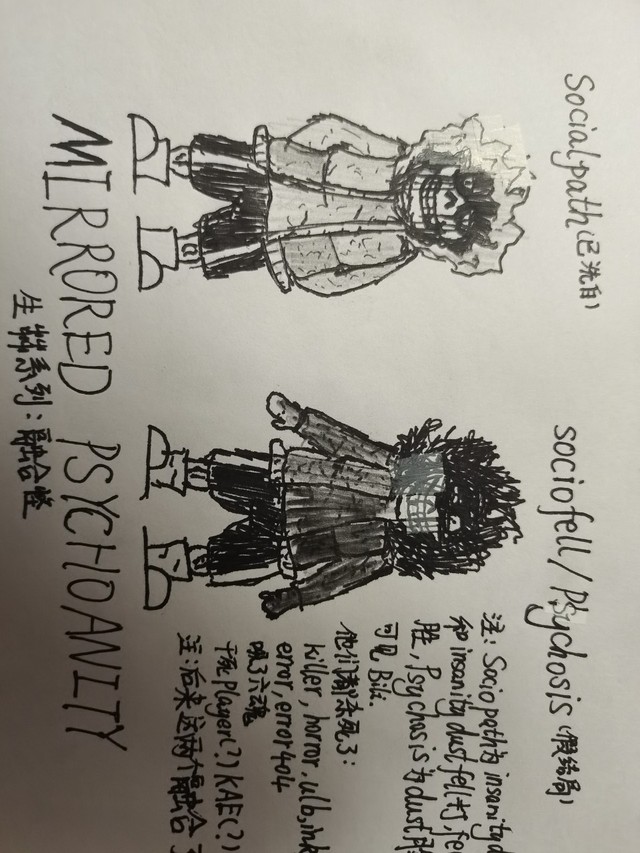 Socialpath (已洗白)
sociofell/Psychosis (假结局)
注: Sociopath为insanity
和insanity dust, fell打, fe
胜, Psychosis为dust
可见Bite.
他们都杀死了:
killer, horror, ulb, ink
error, error404
吸了六魂
干死Player(?) KAE(?)
注:后来这两个融合了
MIRRORED PSYCHOANITY
生草系列:融合怪